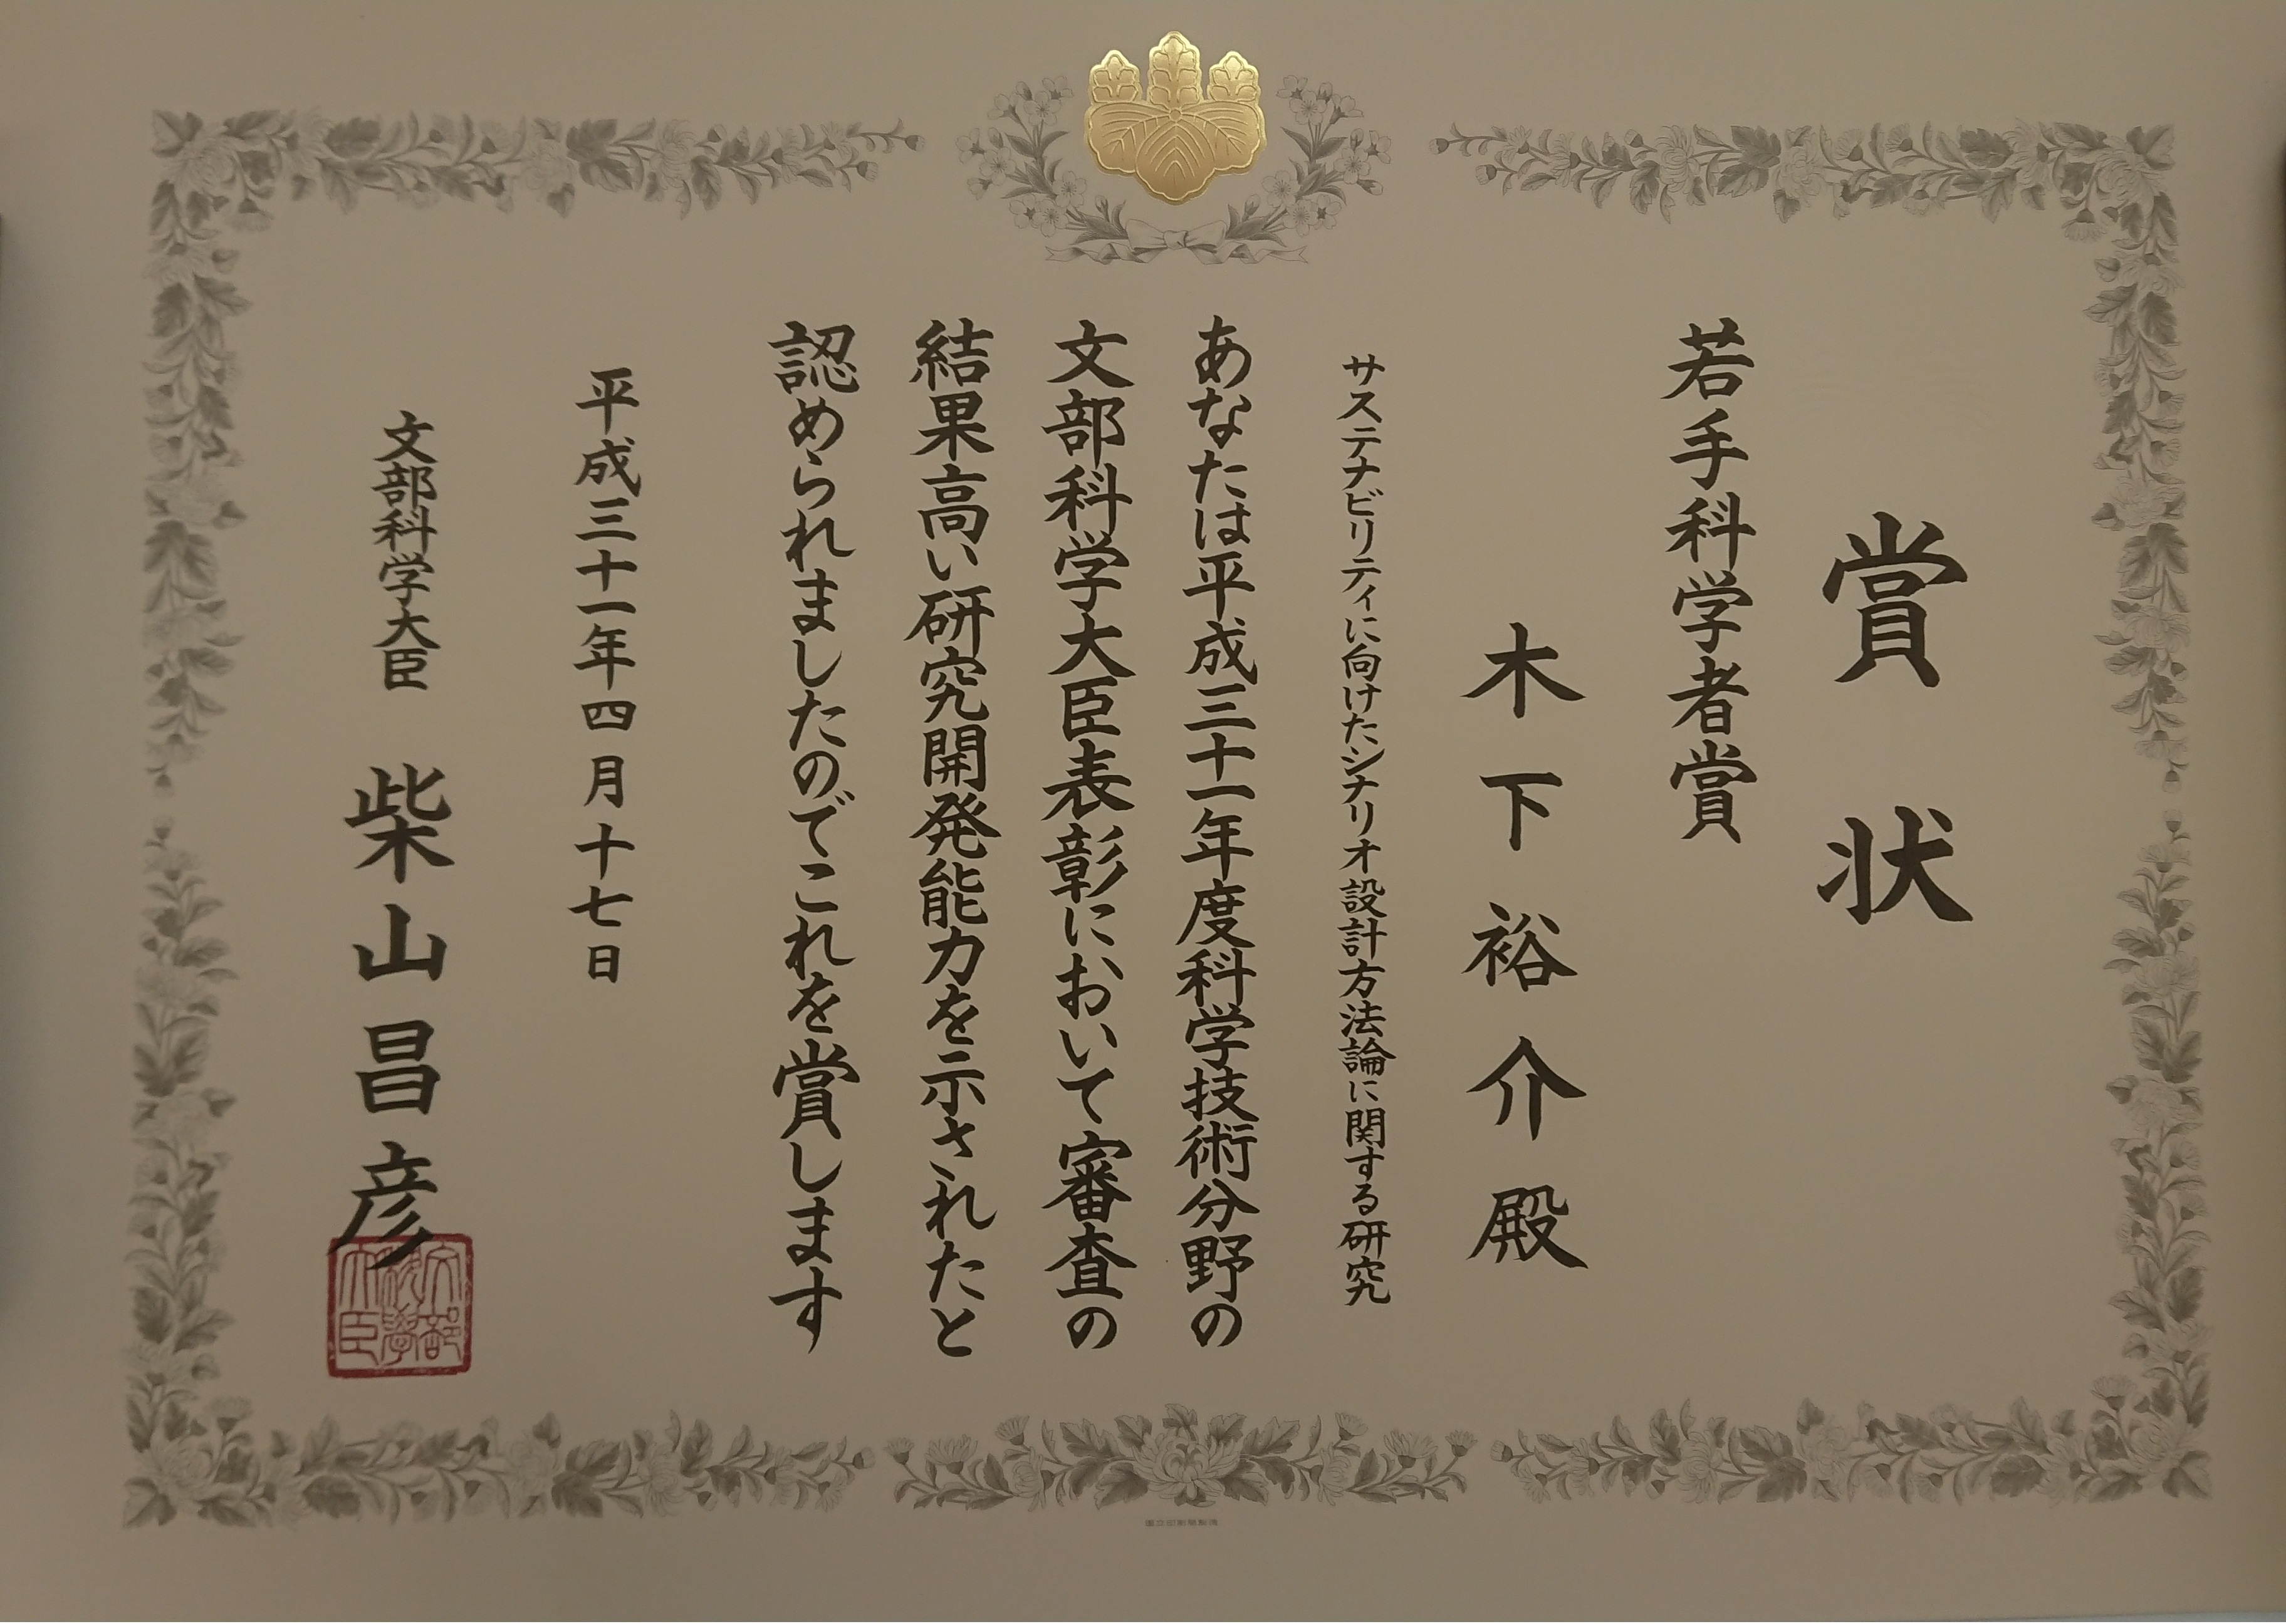 賞状
若手科学者賞
木下裕介殿
サステナビリティに向けたシナリオ設計方法論に関する研究
あなたは平成三十一年度科学技術分野の
文部科学大臣表彰において審査の
結果高い研究開発能力を示されたと
認められましたのでこれを賞します
平成三十一年四月十七日
文部科学大臣 柴山昌彦
文部科学大臣
国立印刷局製造